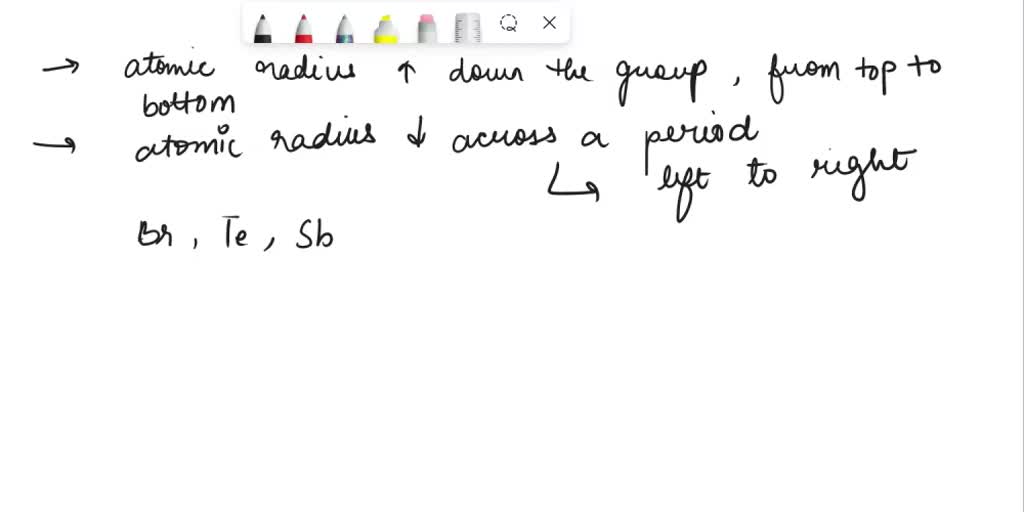 → atomic radius ↑ down the group, from top to
bottom
→ atomic radius ↓ across a period
↳ left to right
Br, Te, Sb